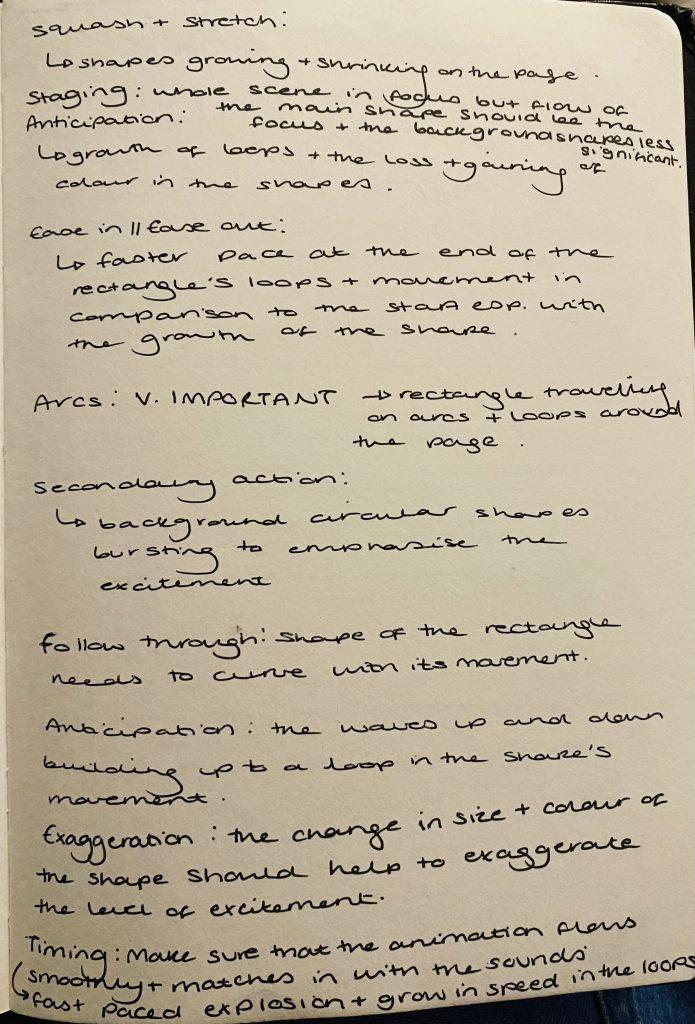 Squash + Stretch:
↳ shapes growing + shrinking on the page.
Staging: whole scene in focus but flow of
the main shape should be the
focus + the background shapes less
significant.
Anticipation:
↳ growth of loops + the loss + gaining of
colour in the shapes.
Ease in || Ease out:
↳ faster pace at the end of the
rectangle's loops + movement in
comparison to the start esp. with
the growth of the shape.
Arcs: V. IMPORTANT → rectangle travelling
on arcs + loops around
the page.
Secondary action:
↳ background circular shapes
bursting to emphasise the
excitement
Follow through: Shape of the rectangle
needs to curve with its movement.
Anticipation: the waves up and down
building up to a loop in the shape's
movement.
Exaggeration: the change in size + colour of
the shape should help to exaggerate
the level of excitement.
Timing: Make sure that the animation flows
smoothly + matches in with the sounds
↳ fast paced explosion + grow in speed in the loops